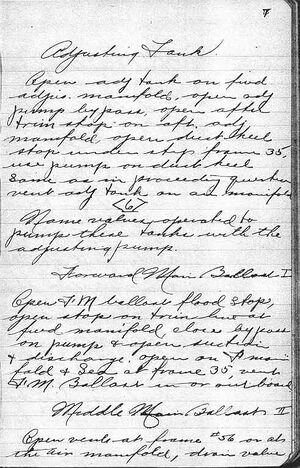 7
Adjusting Tank
Open adj tank on fwd
adjus. manifold, open adj
pump by pass, open after
trim stop on aft. adj
manifold, open duct keel
stop under step frame 35,
use pump on duct keel
same as in preceeding question
vent adj tank on air manifold
<6>
Name valves operated to
pump these tanks with the
adjusting pump.
Forward Main Ballast I
Open F.M ballast flood stop,
open stop on trim line at
fwd manifold close by pass
on pump & open suction
& discharge. open on F mani-
fold & Sea at frame 35, vent
F.M. Ballast in or outboard
Middle Main Ballast II
Open vents at frame #56 or at
the air manifold, drain valve